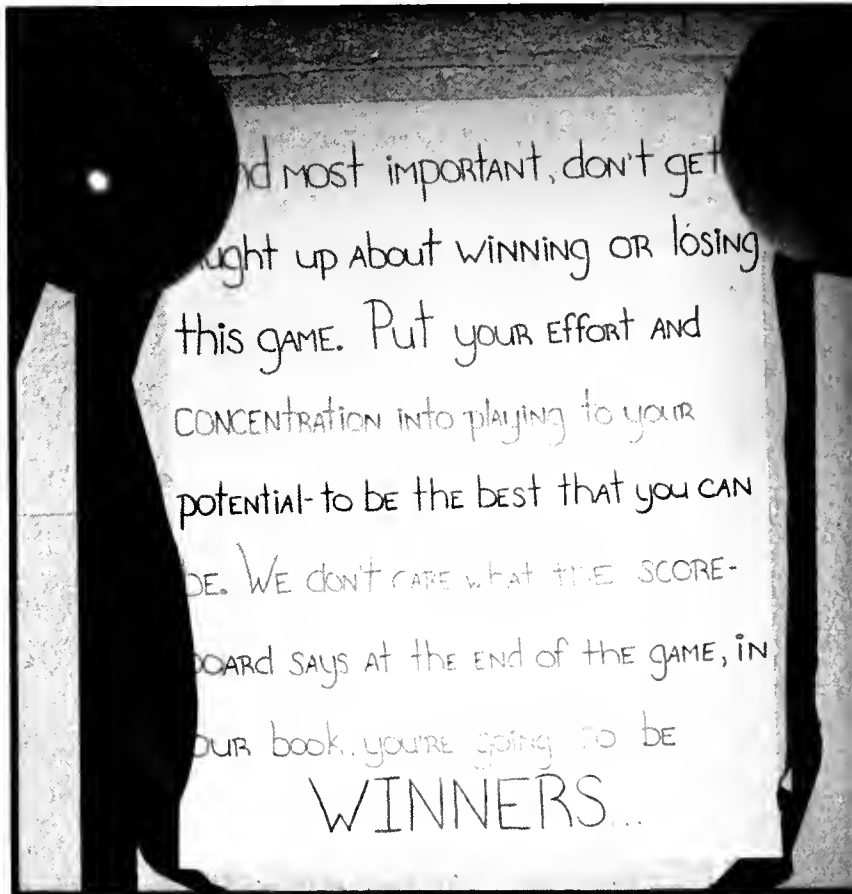 nd most important, don't get
ught up about winning or losing
this game. Put your effort and
concentration into playing to your
potential-to be the best that you can
be. We don't care what the score-
board says at the end of the game, in
our book. you're going to be
WINNERS...